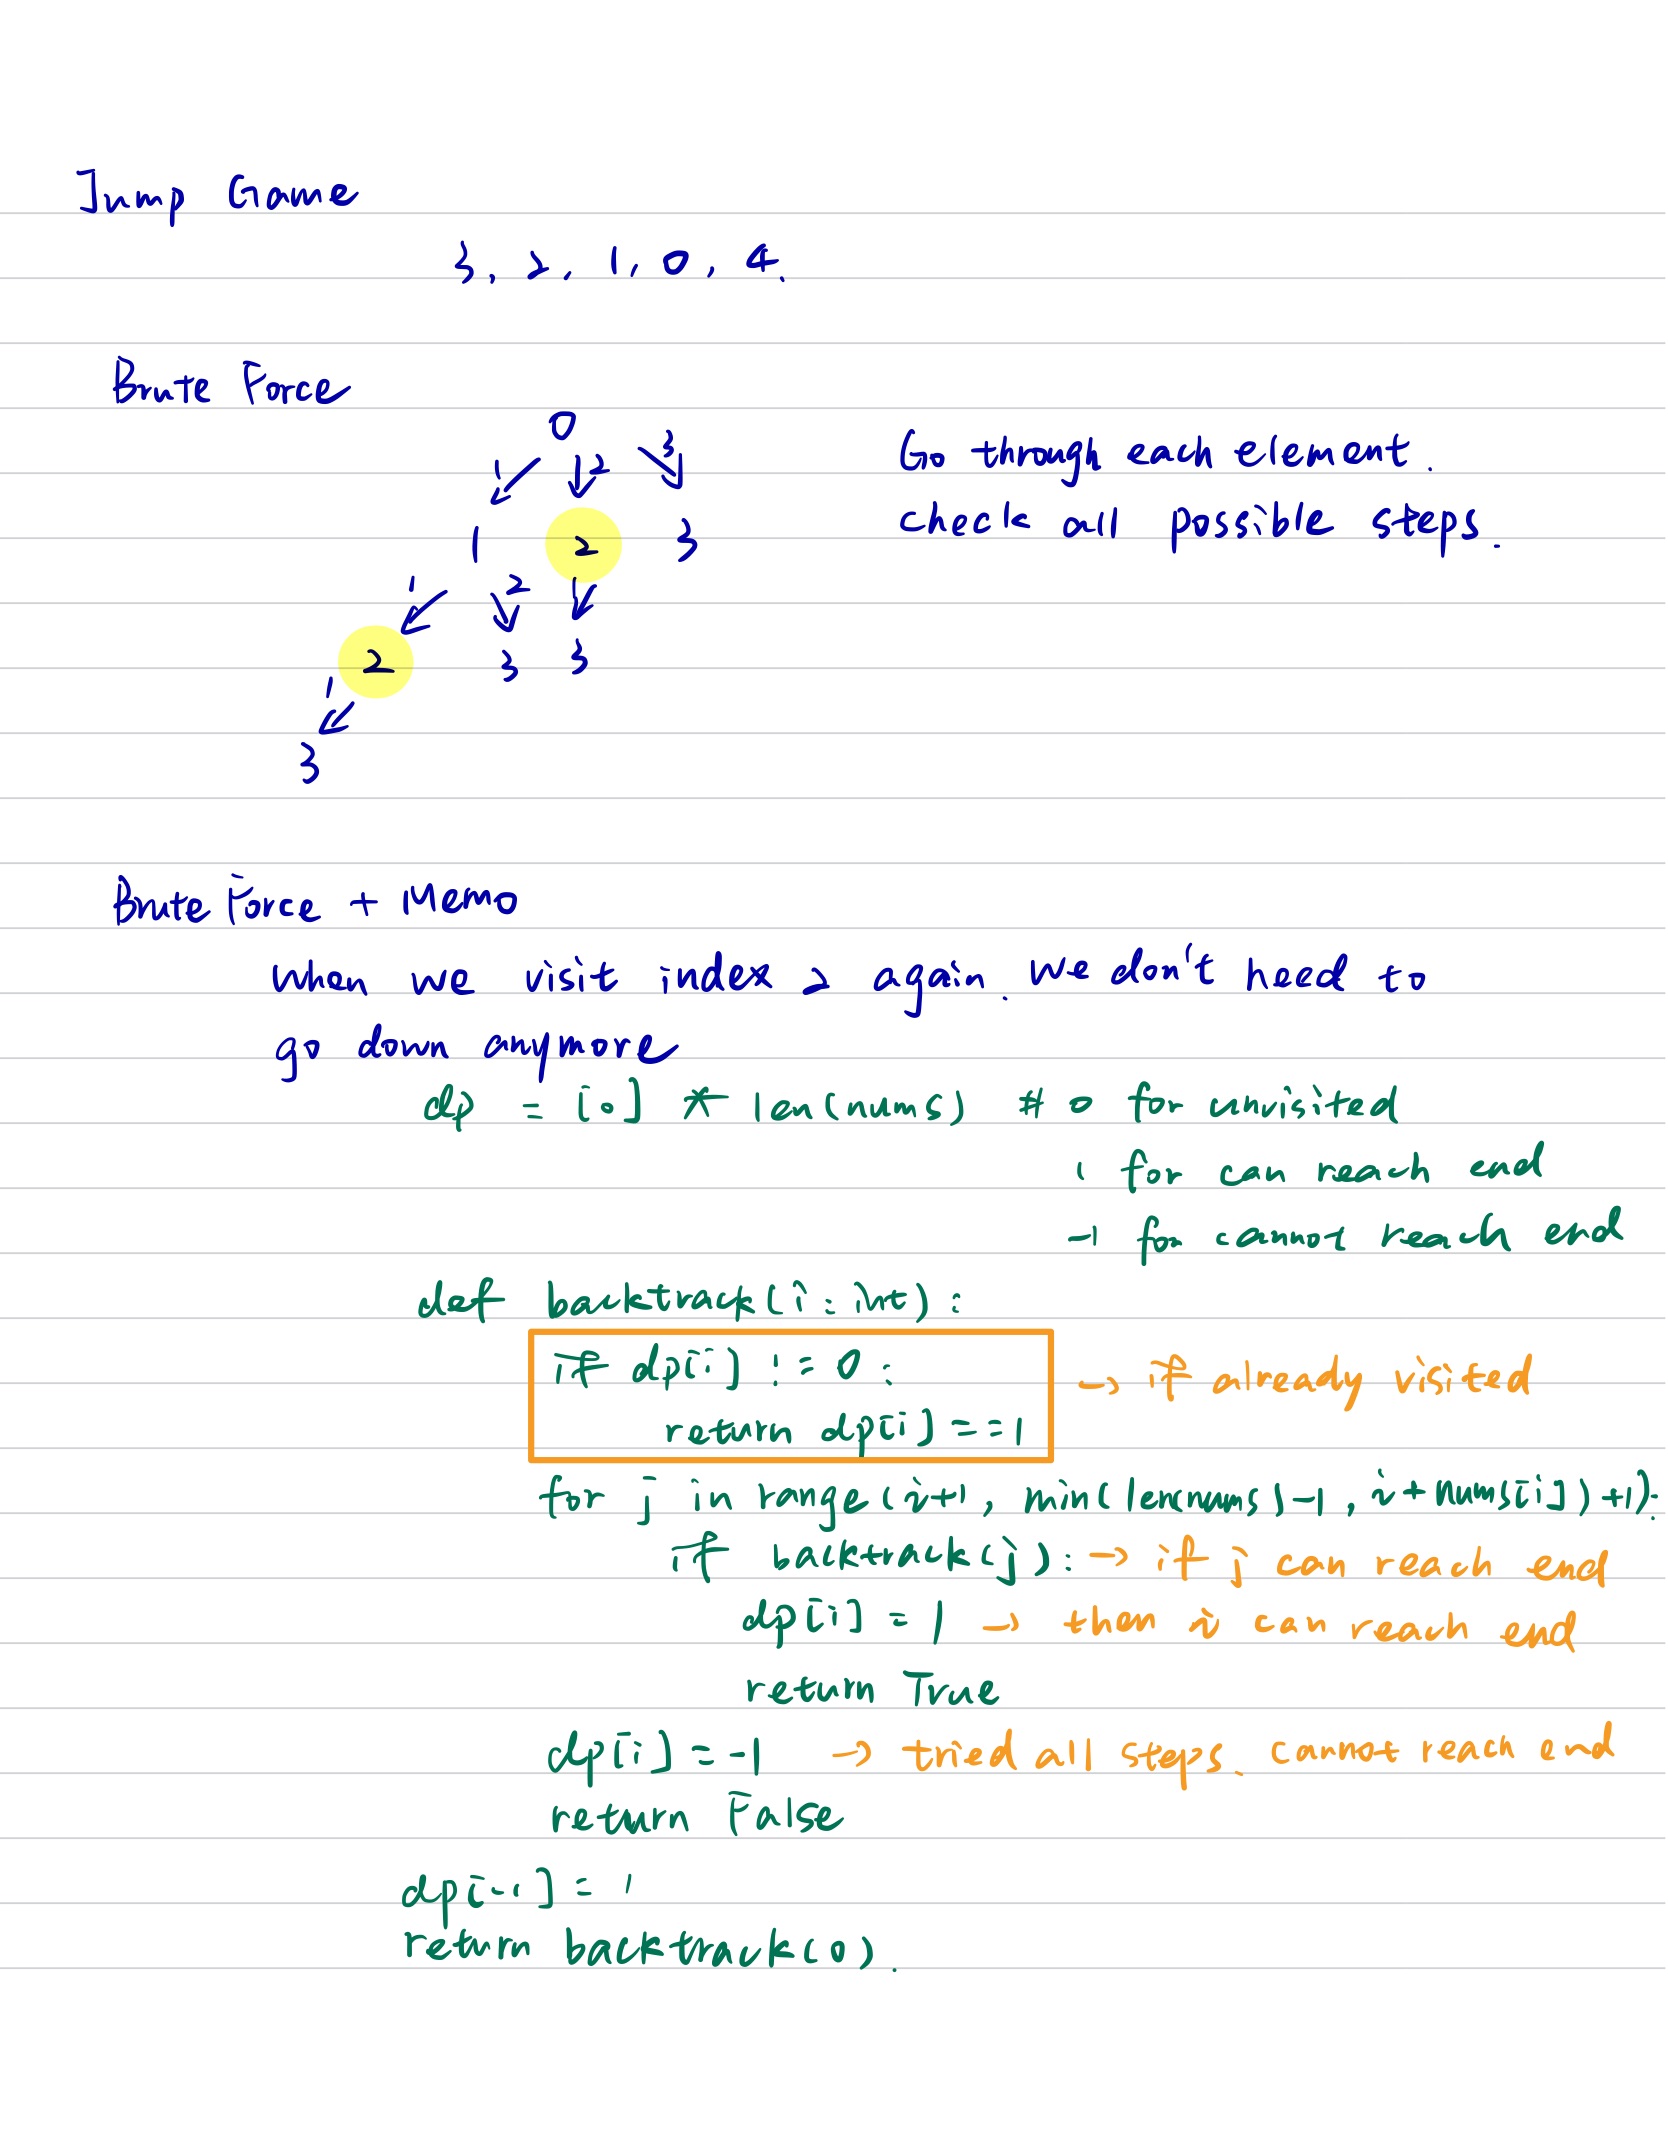 Jump Game
3, 2, 1, 0, 4.
Brute Force
0
1 2 3
Go through each element.
check all possible steps.
1 2 3
1 2 1
2 3 3
1
3
Brute Force + Memo
when we visit index 2 again. we don't need to
go down anymore
dp = [0] * len(nums) # 0 for unvisited
1 for can reach end
-1 for cannot reach end
def backtrack(i: int):
if dp[i] != 0: → if already visited
return dp[i] == 1
for j in range(i+1, min(len(nums)-1, i+nums[i])+1):
if backtrack(j): → if j can reach end
dp[i] = 1 → then i can reach end
return True
dp[i] = -1 → tried all steps. cannot reach end
return False
dp[-1] = 1
return backtrack(0).